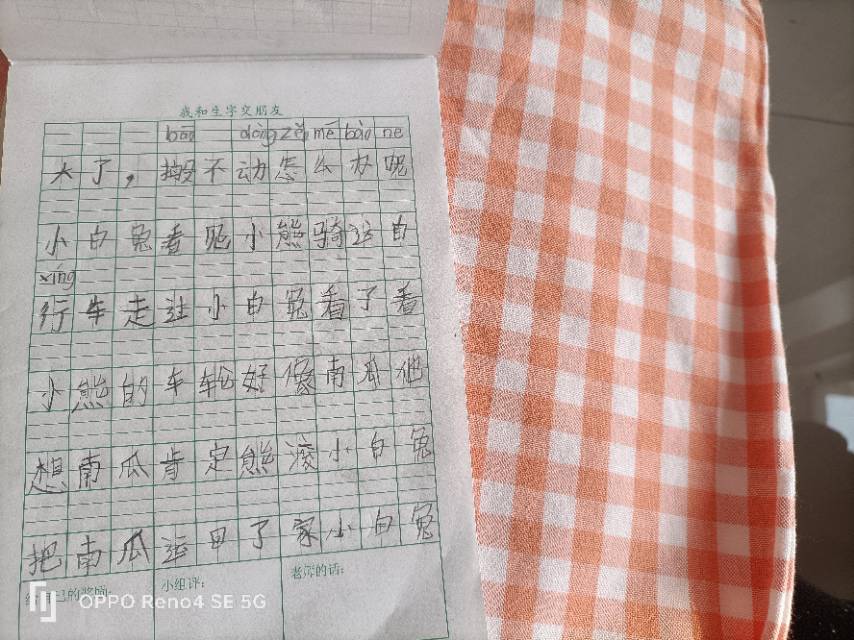 我和生字交朋友
bān dòng zěn mē bàn ne
大了，搬不动怎么办呢
小白兔看见小熊骑这自
xíng
行车走过小白兔看了看
小熊的车轮好像南瓜他
想南瓜肯定能滚小白兔
把南瓜运回了家小白兔
给自己的奖励： 小组评： 老师的话：
OPPO Reno4 SE 5G